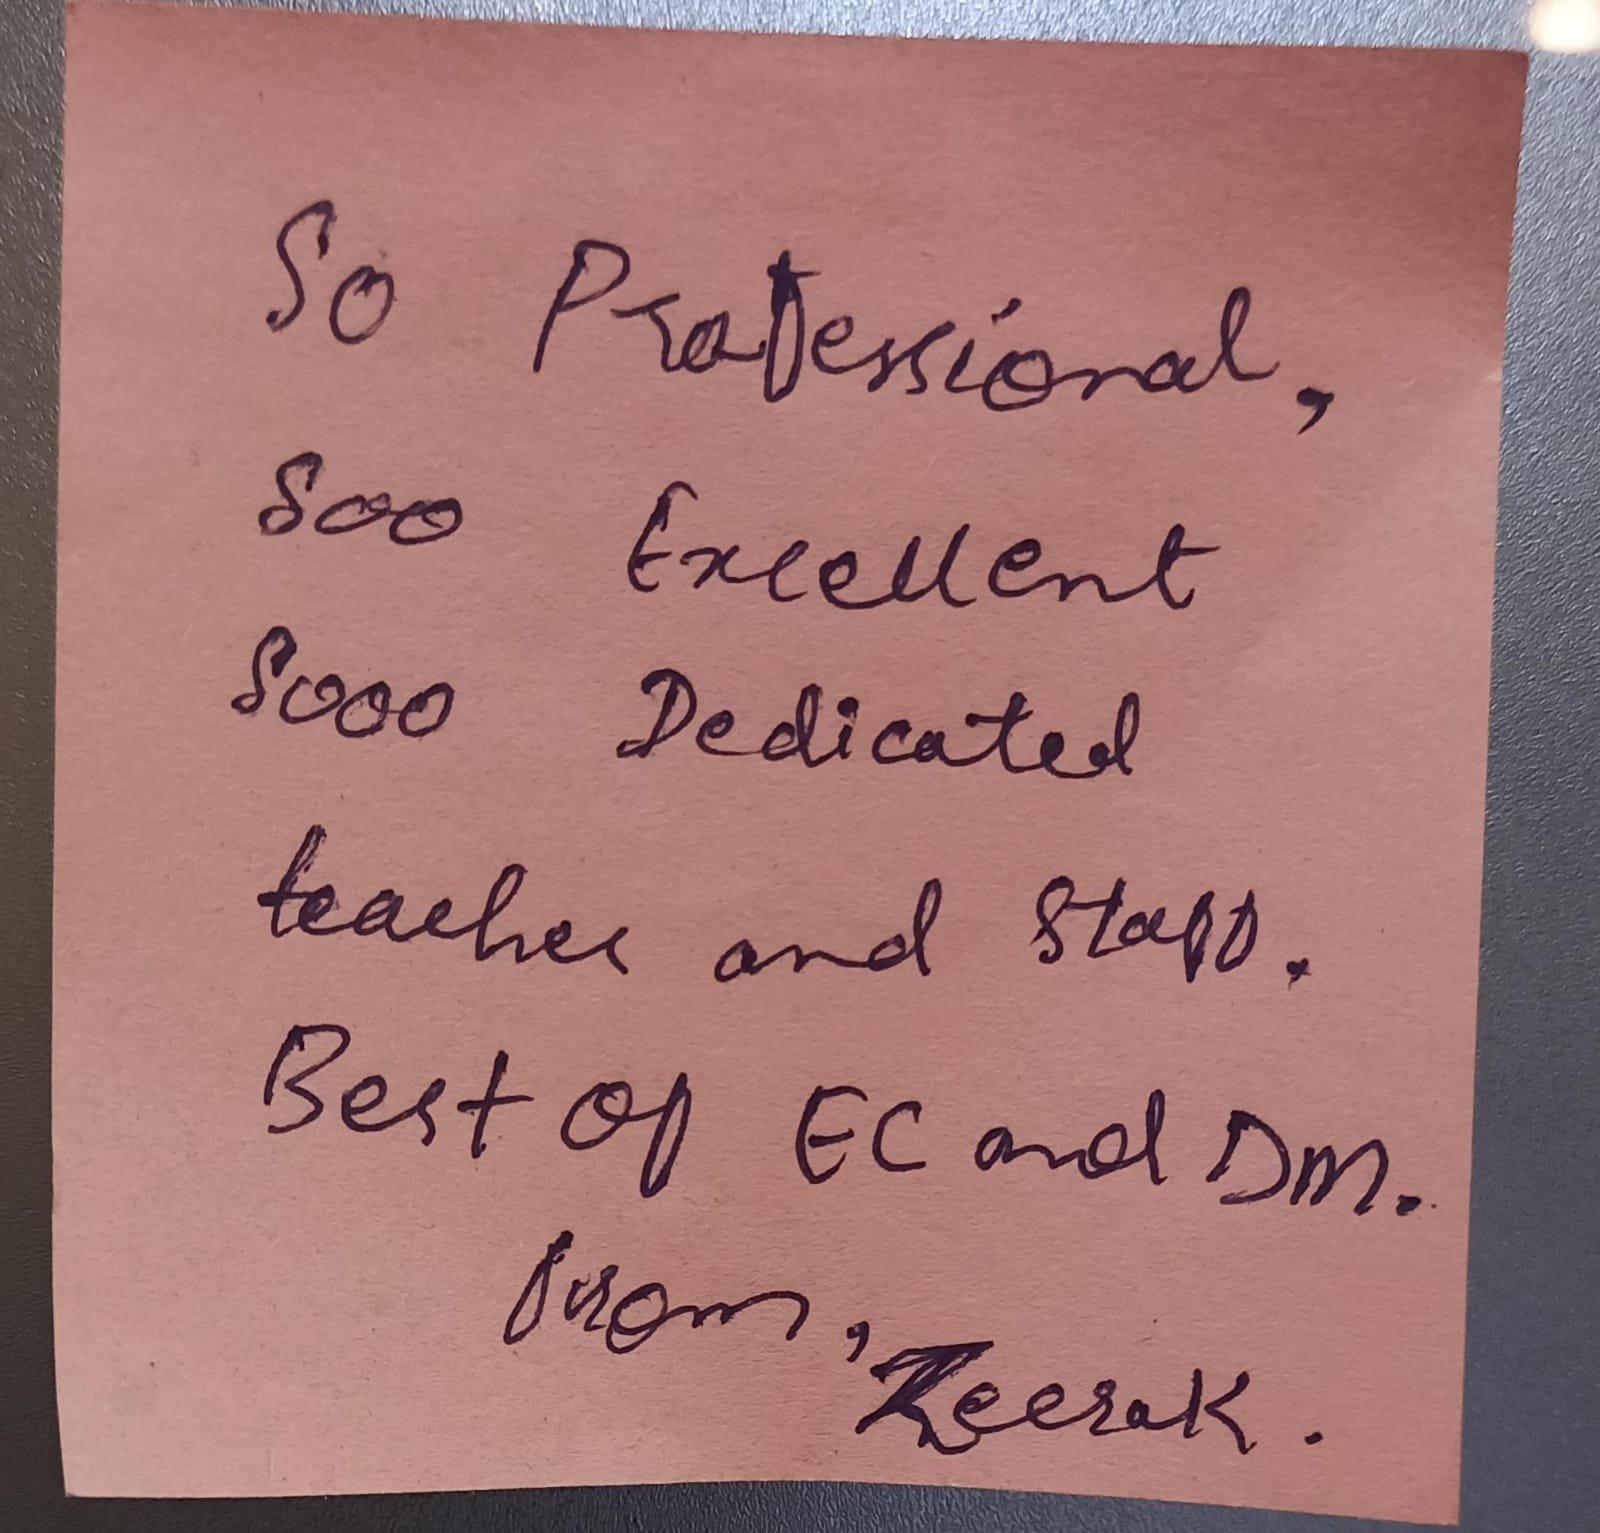 So Professional,
Soo Excellent
Sooo Dedicated
teacher and Staff.
Best of EC and DM.
from,
Zeerak.